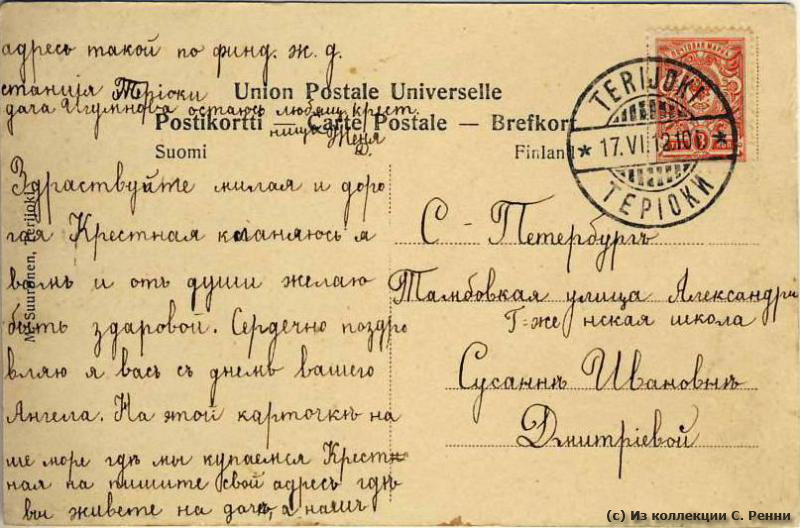 адресъ такой по финд. ж. д.
станція Теріоки
дача Игумнова остаюсь любящ. крест.
ница Женя
Д.
Union Postale Universelle
Postikortti — Carte Postale — Brefkort
Suomi Finland
TERIJOKI
* 17.VI.12.10 *
ТЕРІОКИ
M. Suuronen, Terijoki
Здраствуйте милая и доро
гая Крестная кланяюсь я
вамъ и отъ души желаю
быть здаровой. Сердечно поздро
вляю я васъ съ днемъ вашего
Ангела. На этой карточкѣ на
ше море гдѣ мы купаемся Крест
ная на пишите свой адресъ гдѣ
вы живете на дачѣ, а
С-Петербургъ
Тамбовкая улица Александри
Г=же нская школа
Сусаннѣ Ивановнѣ
Дмитріевой
(c) Из коллекции С. Ренни